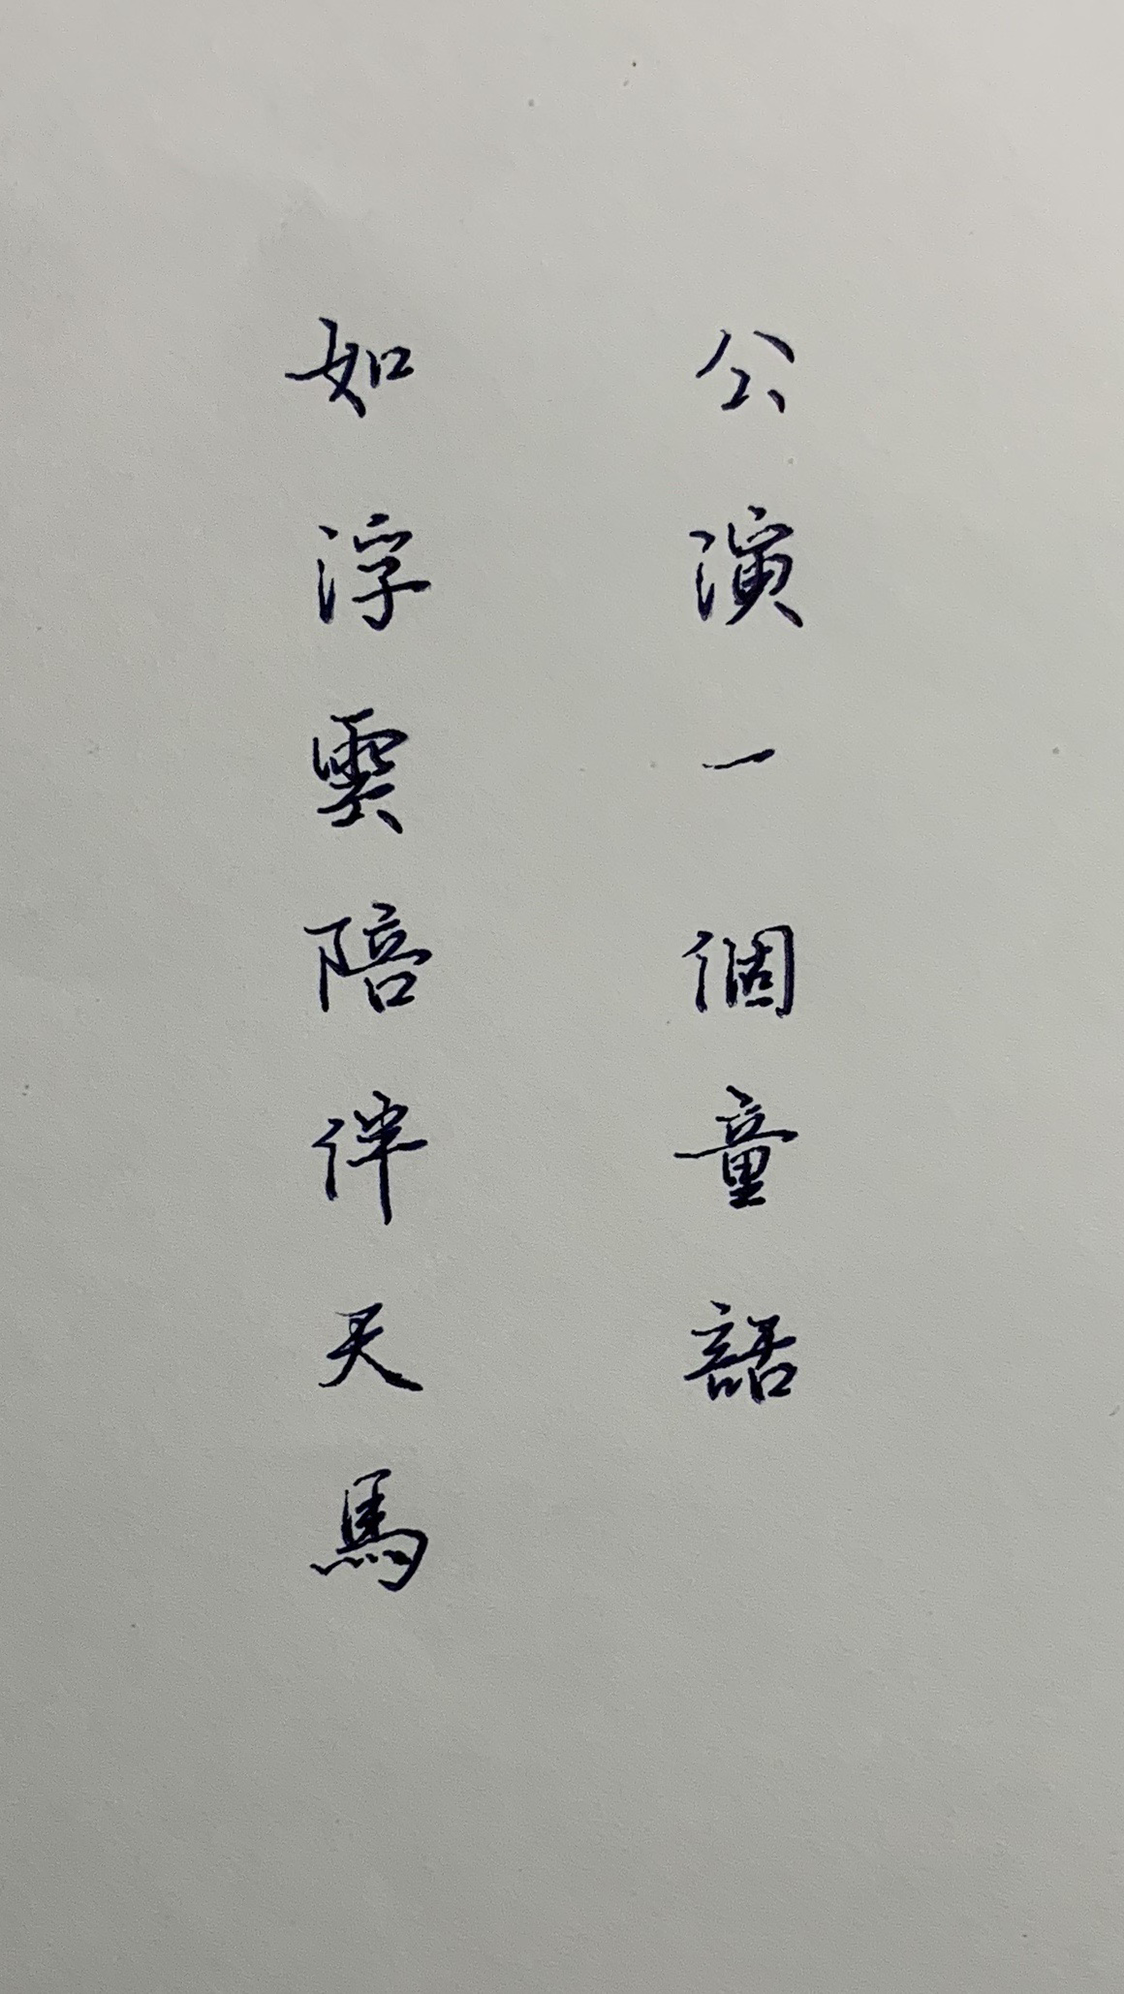 公演一個童話
如浮雲陪伴天馬